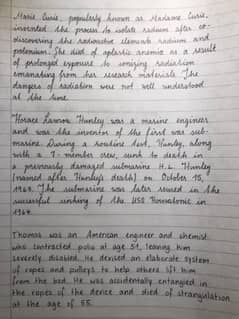 Marie Curie, popularly known as Madame Curie,
invented the process to isolate radium after co-
discovering the radioactive elements radium and
polonium. She died of aplastic anemia as a result
of prolonged exposure to ionizing radiation
emanating from her research materials. The
dangers of radiation were not well understood
at the time.
Horace Lawson Hunley was a marine engineer
and was the inventor of the first war sub-
marine. During a routine test, Hunley, along
with a 7-member crew, sunk to death in
a previously damaged submarine H. L. Hunley
(named after Hunley's death) on October 15,
1863. The submarine was later reused in the
successful sinking of the USS Housatonic in
1864.
Thomas was an American engineer and chemist
who contracted polio at age 51, leaving him
severely disabled. He devised an elaborate system
of ropes and pulleys to help others lift him
from the bed. He was accidentally entangled in
the ropes of the device and died of strangulation
at the age of 55.